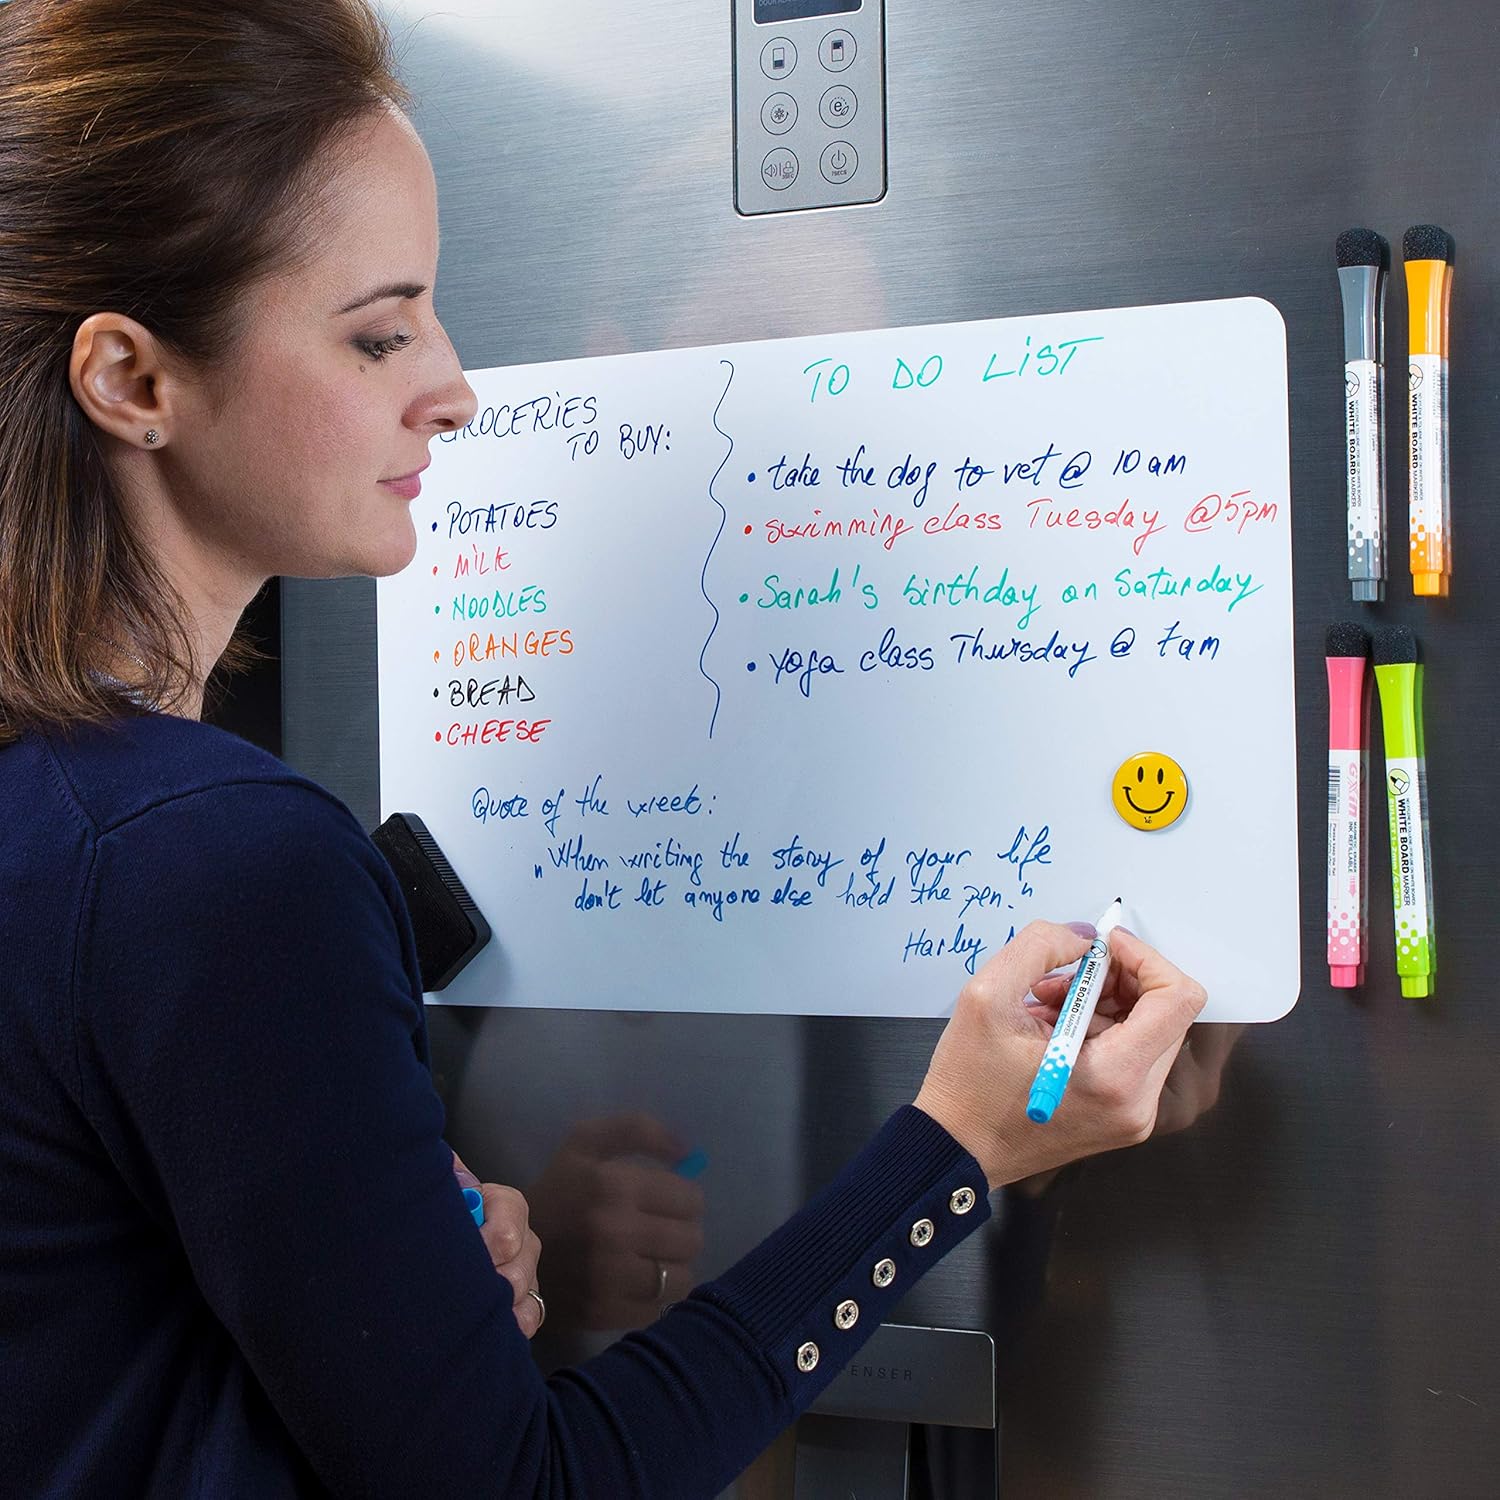 GROCERIES
TO BUY:
• POTATOES
• MILK
• NOODLES
• ORANGES
• BREAD
• CHEESE
TO DO LiST
• take the dog to vet @ 10 am
• swimming class Tuesday @5pm
• Sarah's birthday on Saturday
• yoga class Thursday @ 7am
Quote of the week:
"When writing the story of your life
don't let anyone else hold the pen."
Harley
WHITE BOARD MARKER
WHITE BOARD MARKER
WHITE BOARD MARKER
GXIN
MAGNETIC ERASER
INK REFILLABLE
WHITE BOARD MARKER
ENSER